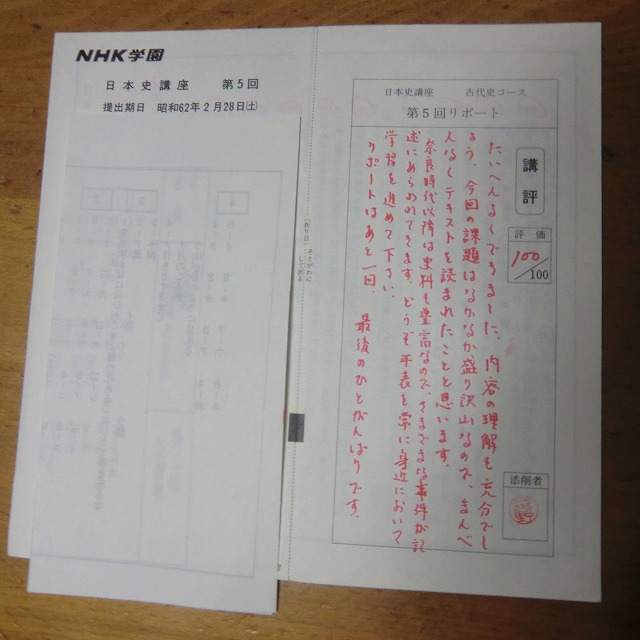 NHK学園
日本史講座 第5回
提出期日 昭和62年2月28日(土)
日本史講座 古代史コース
第5回リポート
講評
評価
100/100
たいへんよくできました。内容の理解も充分でし
ょう。今回の課題はなかなか盛り沢山なので、まんべ
んなくテキストを読まれたことと思います。
奈良時代以降は史料も豊富なので、さまざまな事件が記
述にあらわれてきます。どうぞ年表を常に身近において
学習を進めて下さい。
リポートはあと一回、最後のひとがんばりです。
添削者
(折り目)